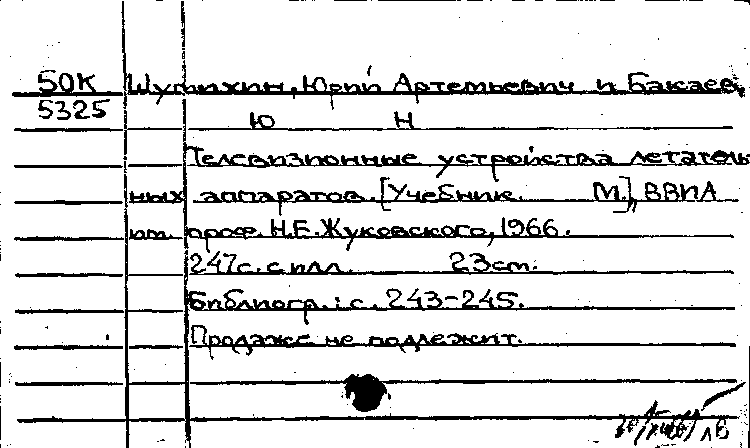 50К Шумихин, Юрий Артемьевич и Бакаев,
5325 Ю Н
Телевизионные устройства летатель
ных аппаратов. [Учебник. М.], ВВИА
им. проф. Н.Е. Жуковского, 1966.
247 с. с илл. 23 cm.
Библиогр.: с. 243-245.
Продаже не подлежит.